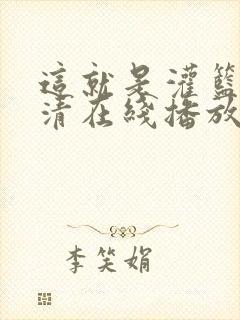 這就是灌籃
清在綫播放
李笑娟